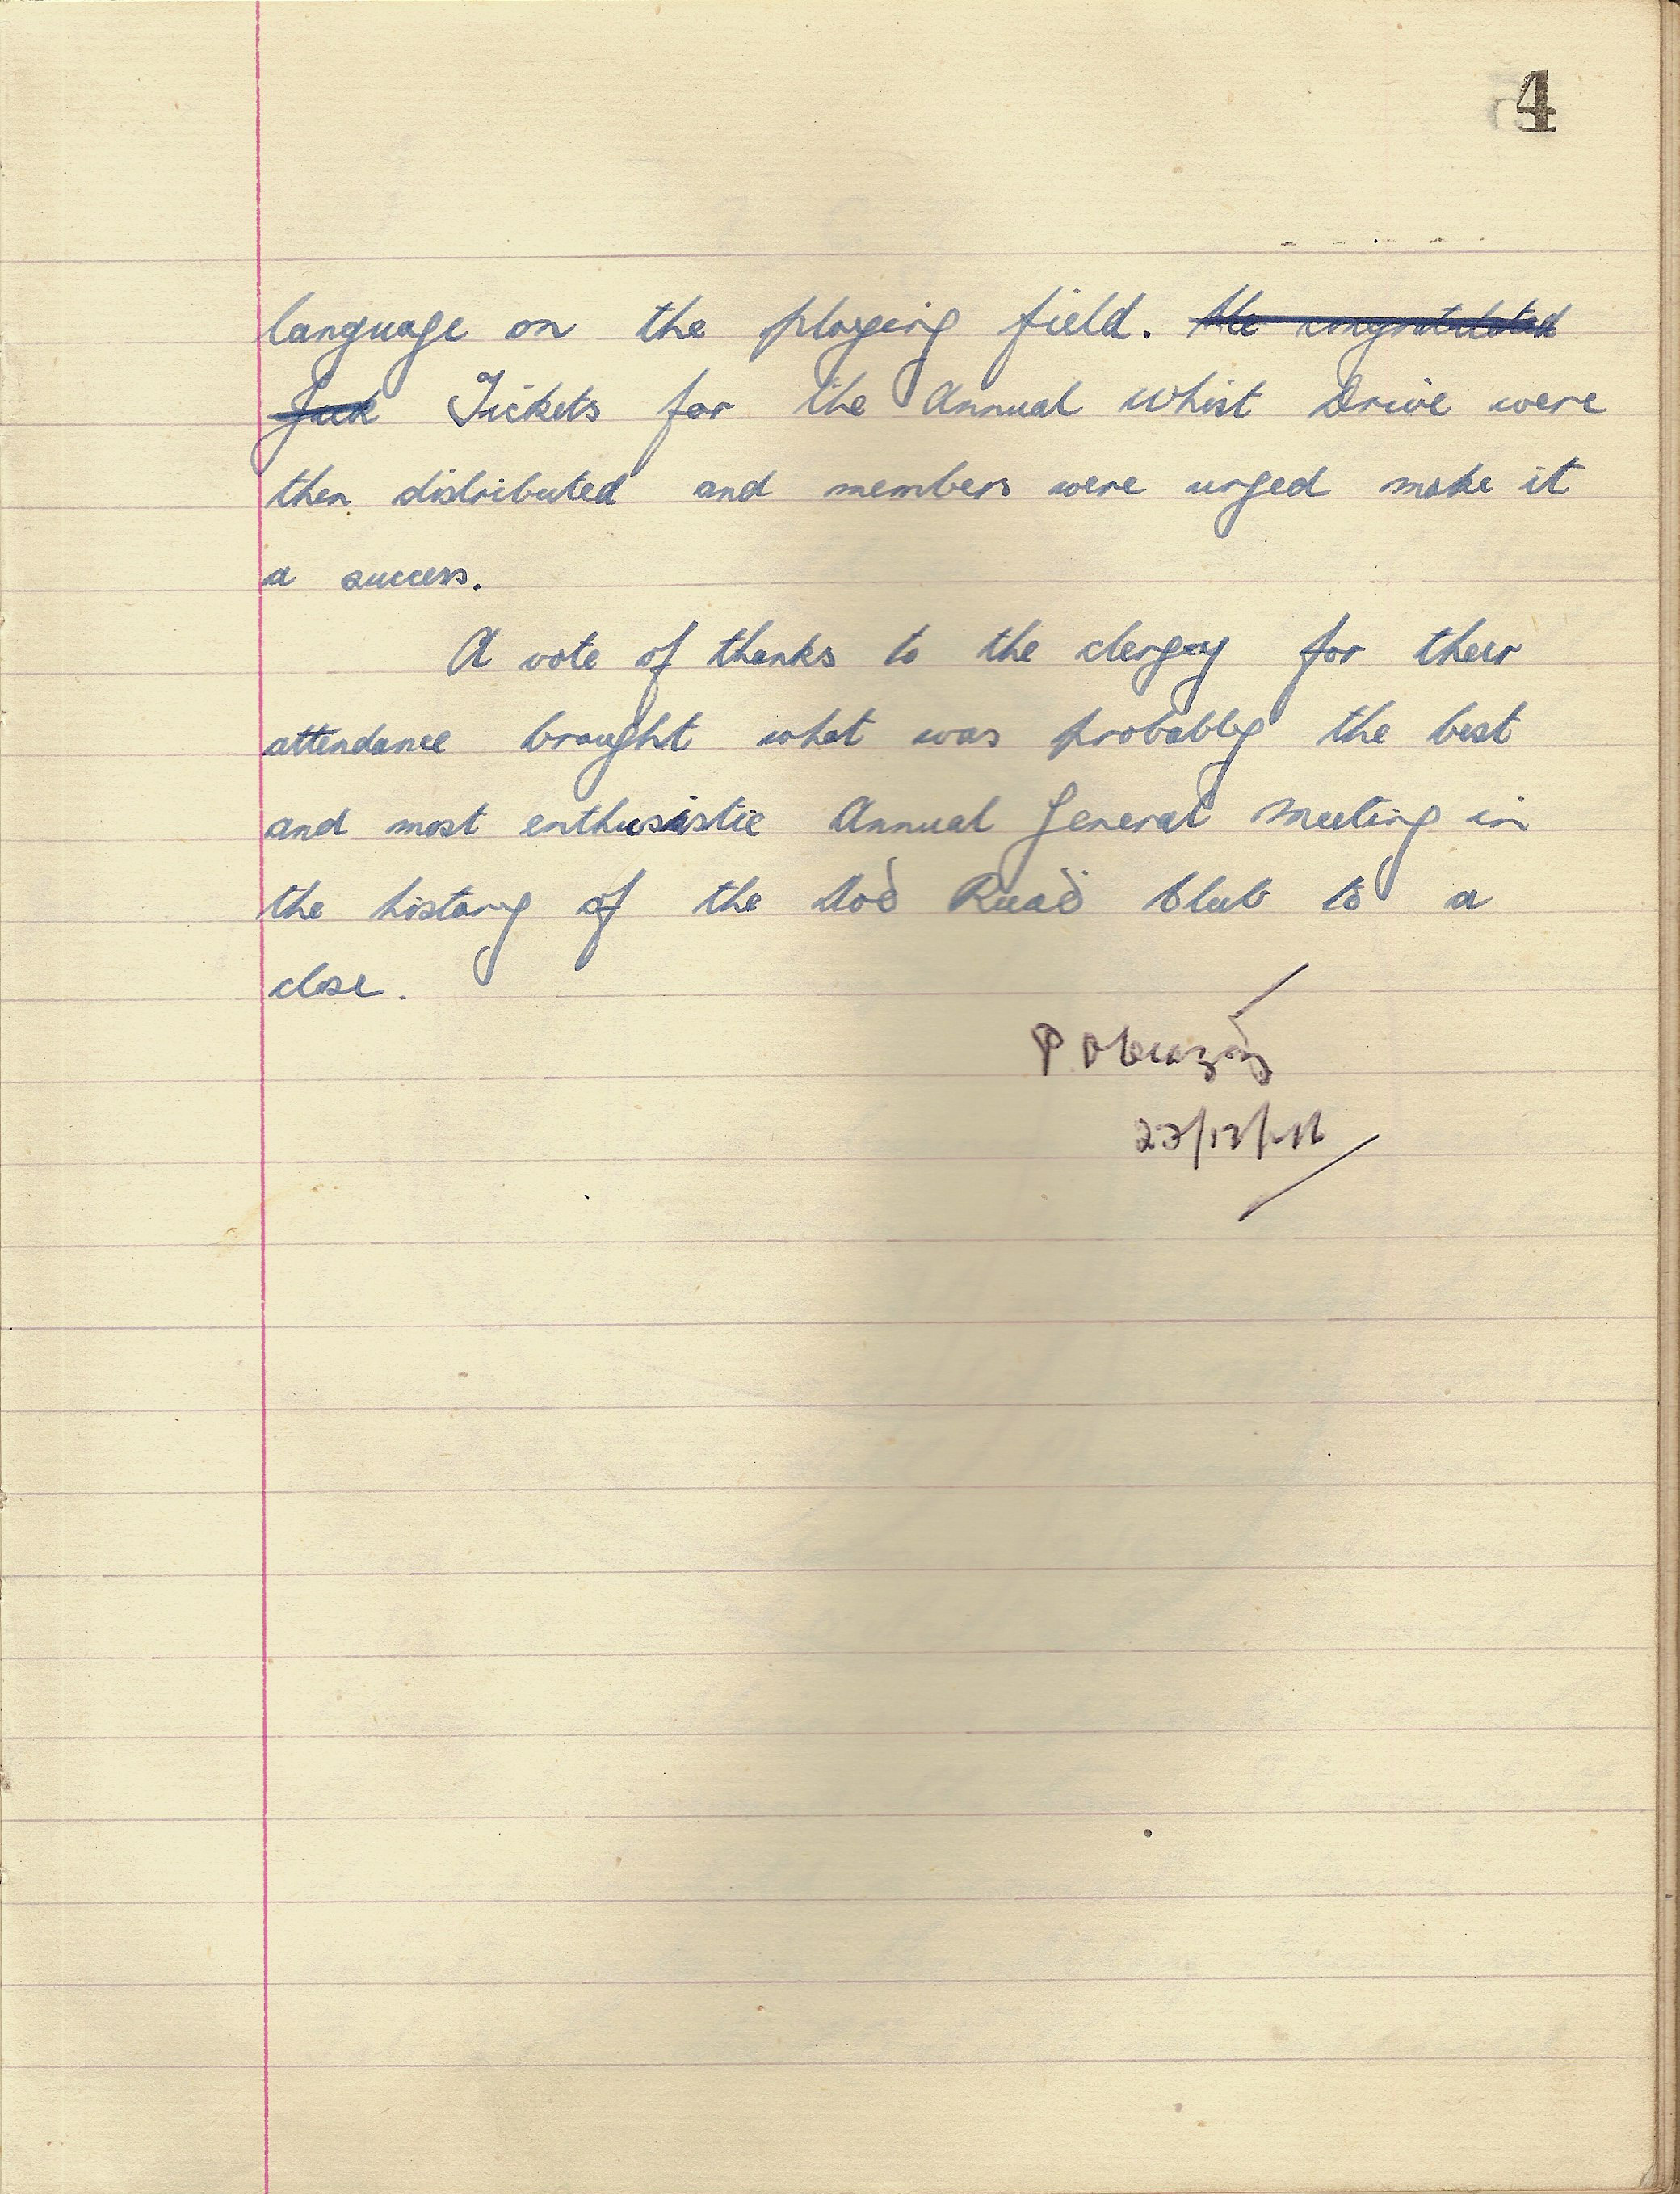 4
language on the playing field. He congratulated
Jack Tickets for the Annual Whist Drive were
then distributed and members were urged make it
a success.
A vote of thanks to the clergy for their
attendance brought what was probably the best
and most enthusiastic Annual General Meeting in
the history of the Aoḋ Ruaḋ Club to a
close.
P.
23/12/